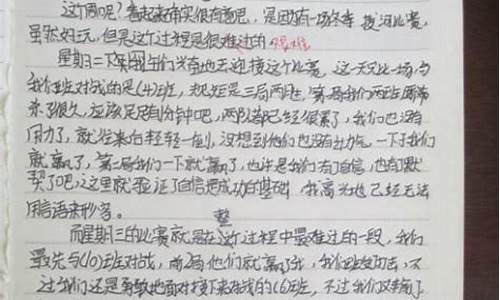 这个周呢?看起来确实很有意思,是因为有一场冬季拔河比赛,
虽然好玩,但是这个过程是很难过的 艰难
星期二下午同学们兴奋地去迎接这个比赛,这一天只比一场,与
我们班对战的是(4)班,规矩是三局两胜,第一局我们两班
来了很久,应该足足有1分钟吧,两队都已经很累了,我们也没有
用力了,就往来白轻轻一倒,没想到他们也没有力气,一下子我们
就赢了,第二局我们一下就赢了,也许是我们有了自信,也有了默
契了吧,这里就验证了自信是成功的基础,我高兴地已经无法
用言语来形容。
整
而星期三的比赛就是在这个过程中最难过的一段,我们
最先与(10)班对战,前2局他们就赢了我,我们班 ,不
过我们还是勇敢地面对接下来对战的(6)班,不过我们又输了